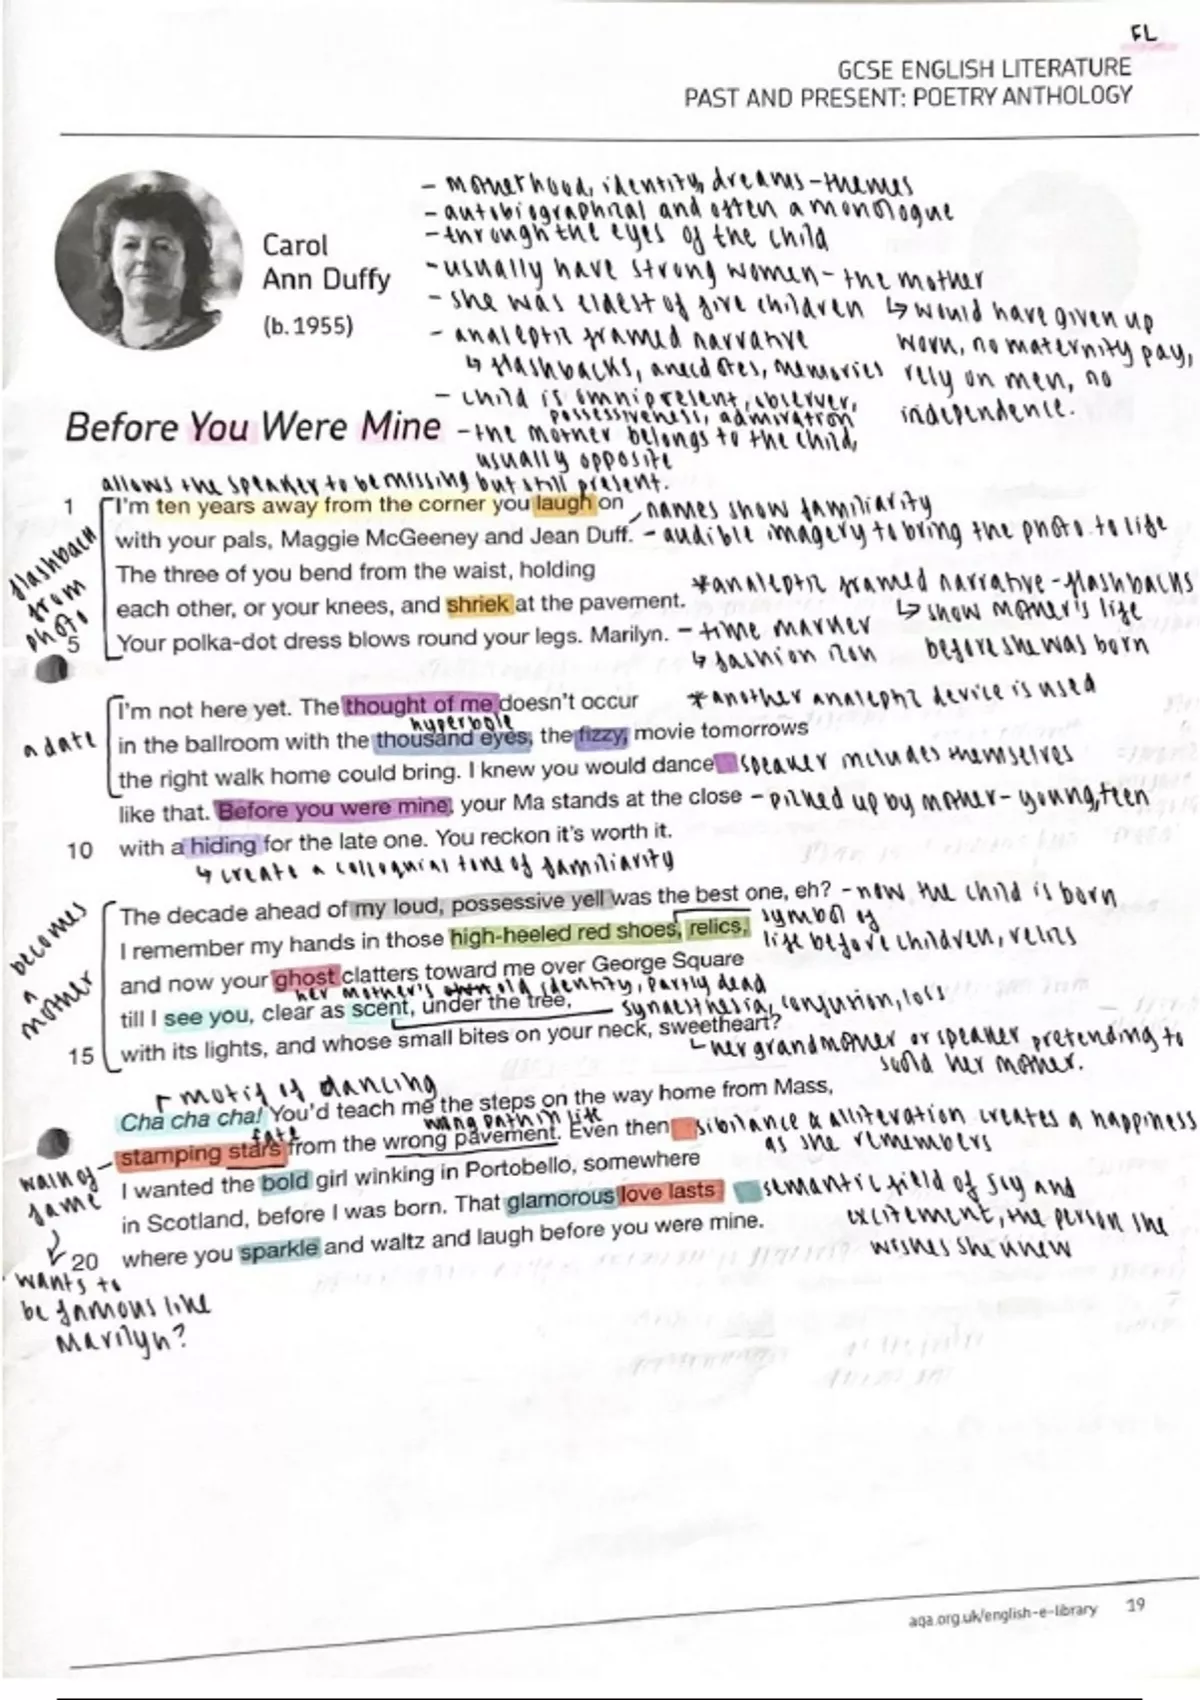 FL
GCSE ENGLISH LITERATURE
PAST AND PRESENT: POETRY ANTHOLOGY
- motherhood, identity, dreams - themes
- autobiographical and often a monologue
- through the eyes of the child
Carol
Ann Duffy
(b.1955)
- usually have strong women - the mother
- she was eldest of five children
↳ would have given up
work, no maternity pay,
rely on men, no
independence.
- analeptic framed narrative
↳ flashbacks, anecdotes, memories
- child is omnipresent, observer,
possessiveness, admiration
Before You Were Mine
- the mother belongs to the child,
usually opposite
allows the speaker to be missing but still present.
1 I'm ten years away from the corner you laugh on
names show familiarity
with your pals, Maggie McGeeney and Jean Duff.
- audible imagery to bring the photo to life
flashback
from
photo
The three of you bend from the waist, holding
each other, or your knees, and shriek at the pavement.
*analeptic framed narrative - flashbacks
↳ show mother's life
before she was born
5 Your polka-dot dress blows round your legs. Marilyn.
- time marker
↳ fashion icon
I'm not here yet. The thought of me doesn't occur
*another analeptic device is used
hyperbole
a date
in the ballroom with the thousand eyes, the fizzy, movie tomorrows
the right walk home could bring. I knew you would dance
speaker includes themselves
like that. Before you were mine, your Ma stands at the close
- picked up by mother - young, teen
10 with a hiding for the late one. You reckon it's worth it.
↳ create a colloquial tone of familiarity
becomes
a
mother
The decade ahead of my loud, possessive yell was the best one, eh?
- now the child is born
I remember my hands in those high-heeled red shoes, relics,
symbol of
life before children, relics
and now your ghost clatters toward me over George Square
her mother's old identity, partly dead
till I see you, clear as scent, under the tree,
synaesthesia, confusion, loss
15 with its lights, and whose small bites on your neck, sweetheart?
her grandmother or speaker pretending to
scold her mother.
motif of dancing
Cha cha cha! You'd teach me the steps on the way home from Mass,
fate
wrong path in life
stamping stars from the wrong pavement. Even then
sibilance & alliteration creates a happiness
as she remembers
walk of
fame
I wanted the bold girl winking in Portobello, somewhere
in Scotland, before I was born. That glamorous love lasts
semantic field of joy and
excitement, the person she
wishes she knew
20 where you sparkle and waltz and laugh before you were mine.
wants to
be famous like
Marilyn?
aqa.org.uk/english-e-library 19